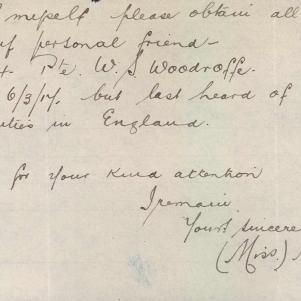 myself please obtain all
of personal friend -
Pte. W. S. Woodroffe.
6/3/17. but last heard of
in England.
for your kind attention
I remain
Yours sincere
(Miss.)